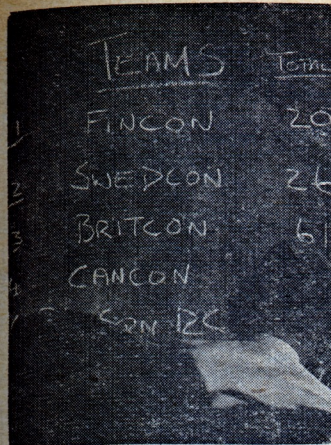 TEAMS TOTAL
1 FINCON 20
2 SWEDCON 26
3 BRITCON 61
4 CANCON